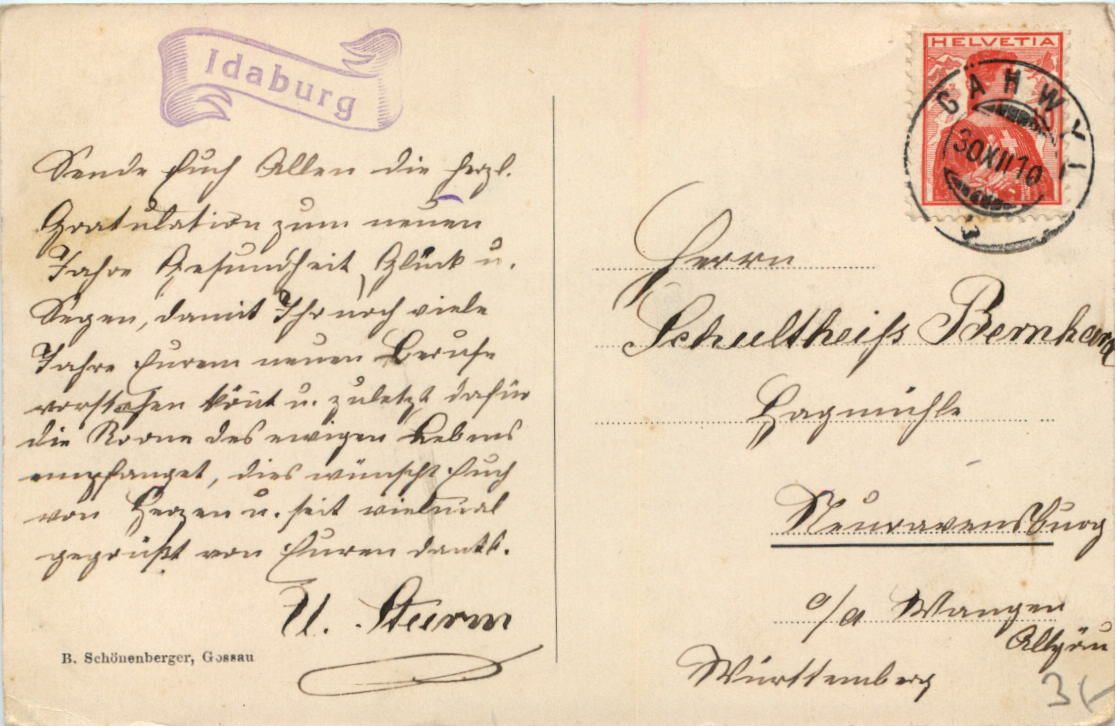 Idaburg
Sende Euch Allen die herzl.
Gratulation zum neuen
Jahre Gesundheit, Glück u.
Segen, damit Ihr noch viele
Jahre Eurem neuen Berufe
vorstehen könnt u. zuletzt dafür
die Krone des ewigen Lebens
empfanget, dies wünscht Euch
von Herzen u. seit vielmal
gegrüßt von Euren dankb.
U. Sturm
B. Schönenberger, Gossau
HELVETIA
GÄHWYL
30XII10
Herrn
Schultheiß Bernhard
Hagmühle
Neuravensburg
o/a Wangen
Allgäu
Württemberg